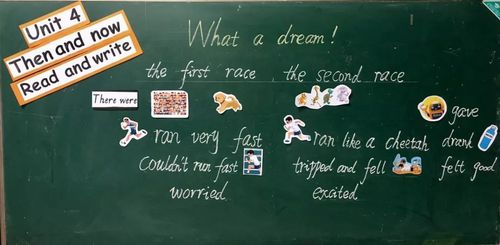 Unit 4
Then and now
Read and write
What a dream!
the first race , the second race
There were
gave
ran very fast ran like a cheetah drank
Couldn't run fast tripped and fell felt good
worried excited